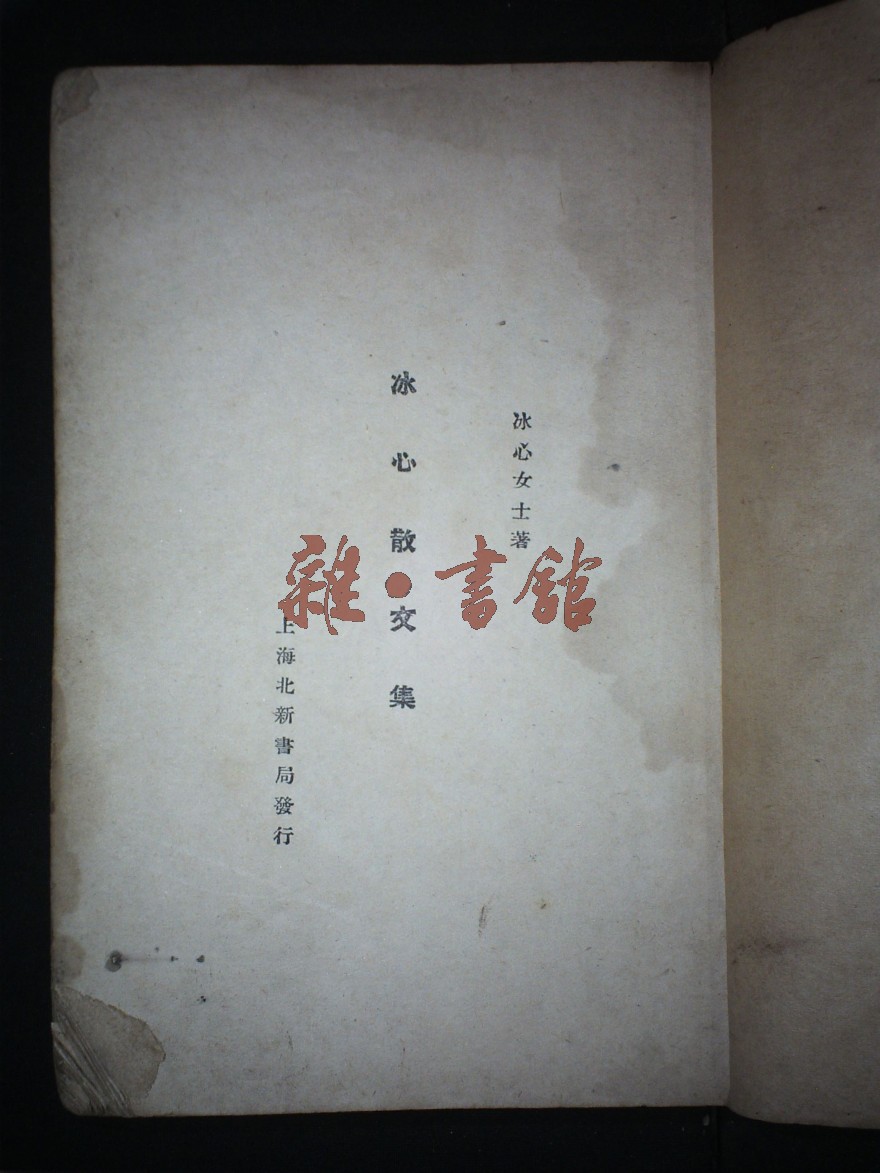 冰心女士著
冰心散文集
上海北新書局發行
雜•書館